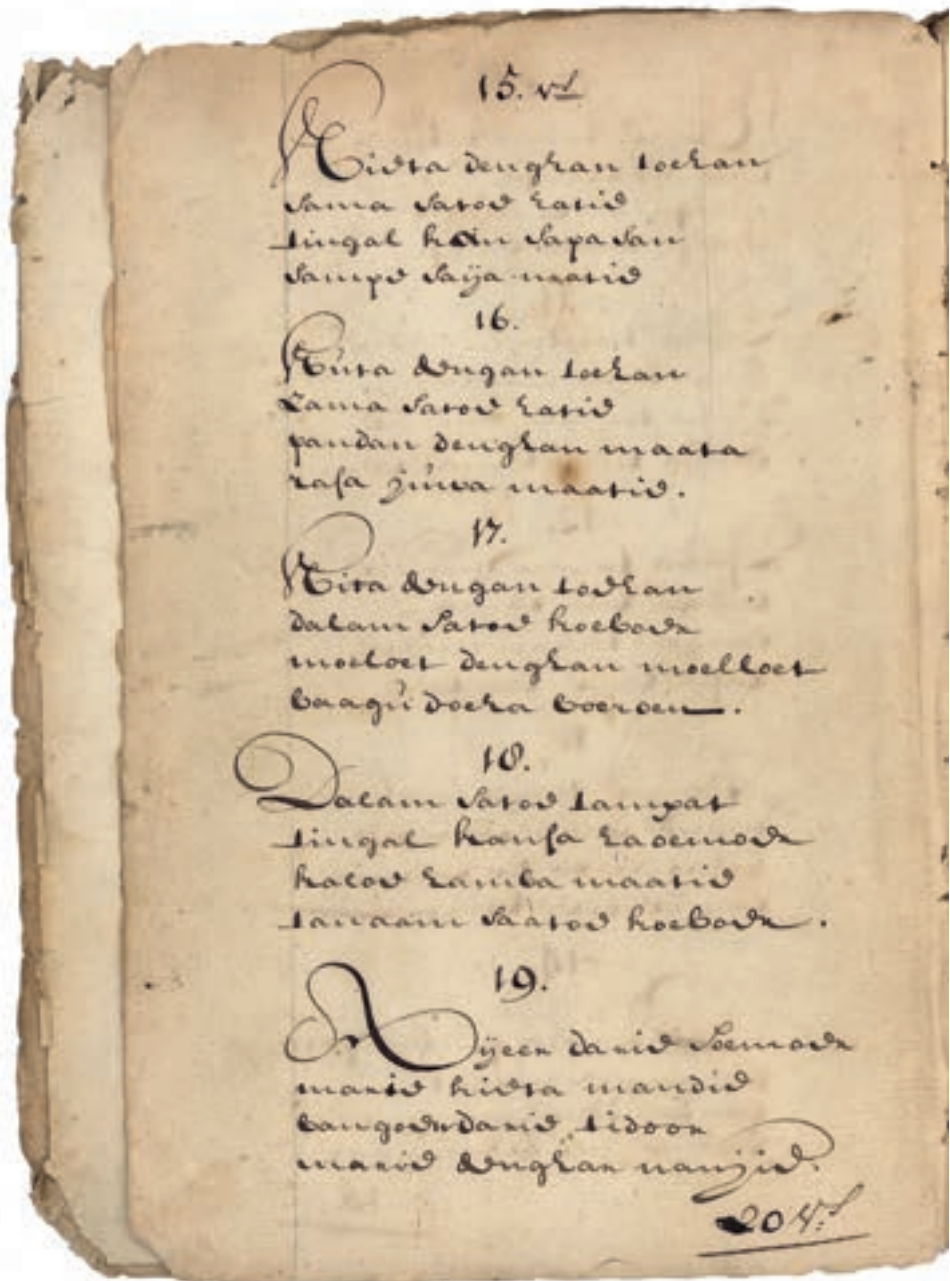 15. vs
Kieta denghan toehan
sama satoe hatie
tingal kan sapasan
sampe saija matie
16.
Kiita dengan toehan
Lama satoe hatie
pandan denghan maata
rasa jiuwa maatie.
17.
Kita dengan toehan
dalam satoe koeboer
moeloet denghan moelloet
baagu doeka boeroen.
18.
Dalam satoe tampat
tingal kansa haoemoer
kaloe hamba maatie
tanaam saatoe koeboer.
19.
Aijeer darie soemoer
marie kieta mandie
bangoer darie tidoor
marie denghar nanjie.
20 vs